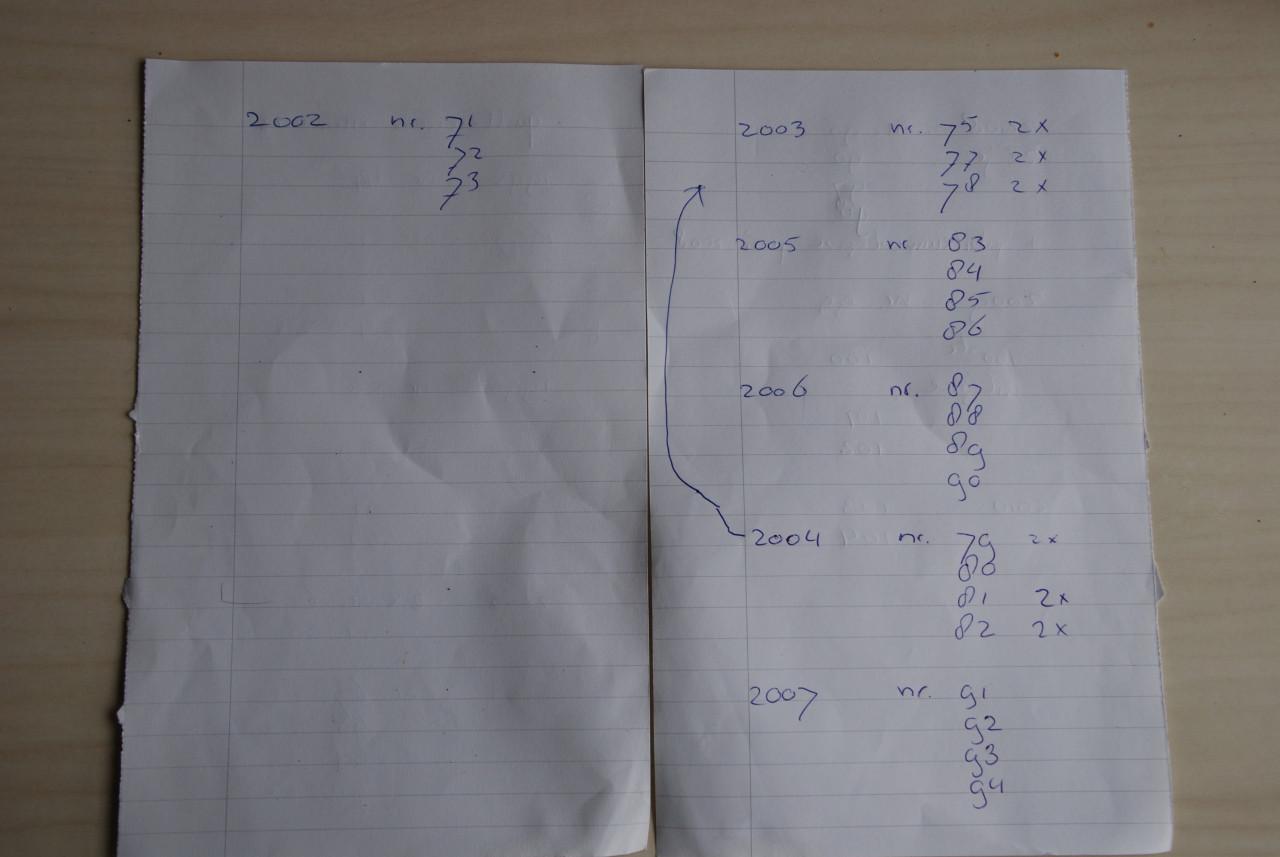 2002 nr. 71
72
73
2003 nr. 75 2x
77 2x
78 2x
2005 nr. 83
84
85
86
2006 nr. 87
88
89
90
2004 nr. 79 2x
80
81 2x
82 2x
2007 nr. 91
92
93
94